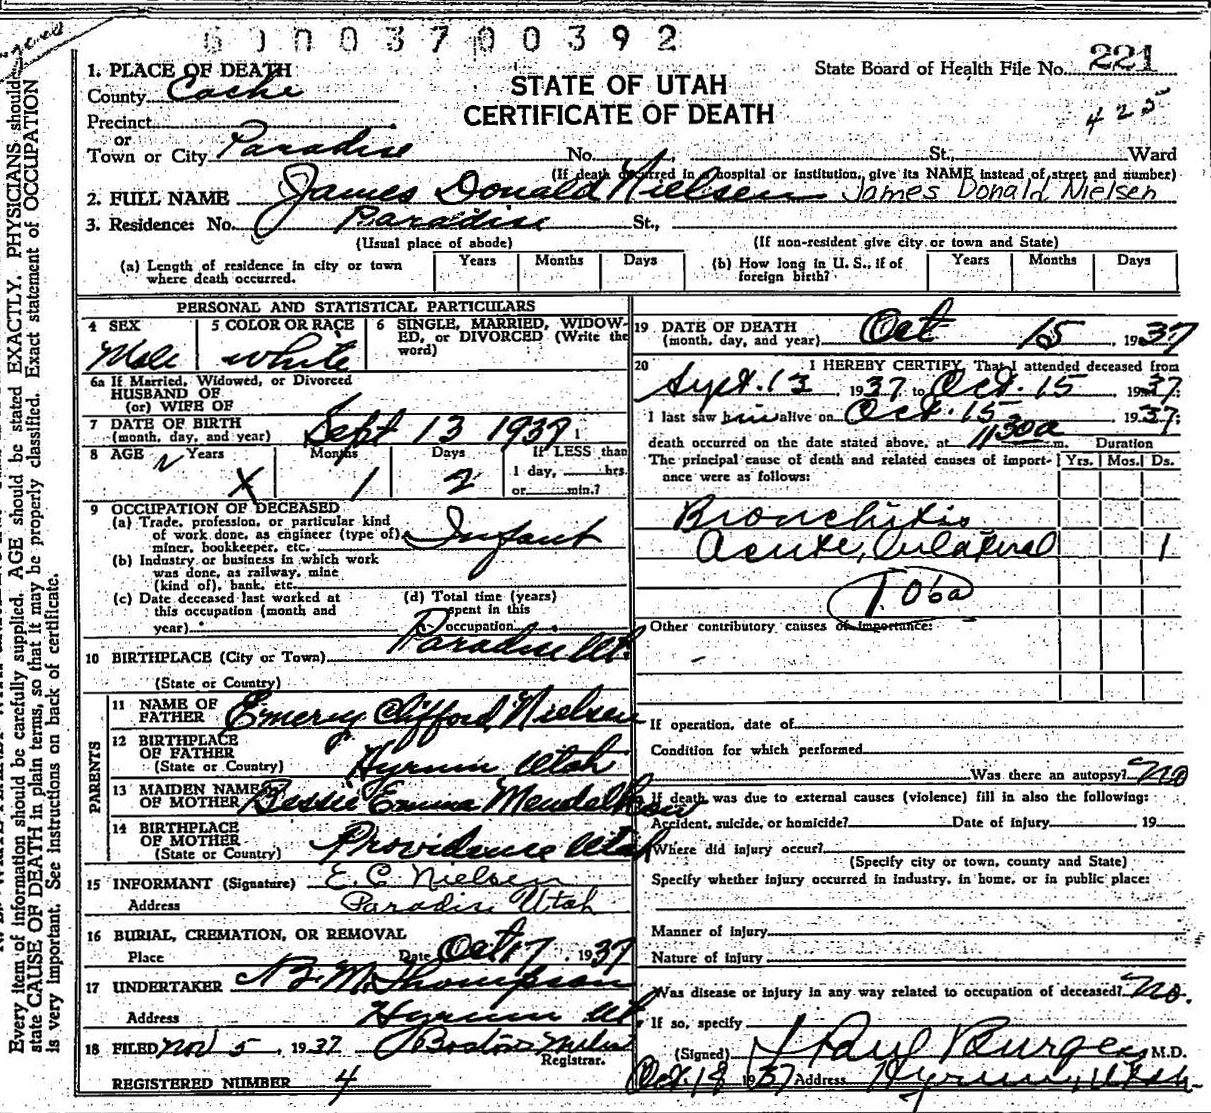 6 0 0 0 3 7 0 0 3 9 2
State Board of Health File No. 221
425
STATE OF UTAH
CERTIFICATE OF DEATH
1. PLACE OF DEATH
County Cache
Precinct
or
Town or City Paradise No. St., Ward
(If death occurred in a hospital or institution, give its NAME instead of street and number)
2. FULL NAME James Donald Nielsen James Donald Nielsen
3. Residence: No. Paradise St.,
(Usual place of abode) (If non-resident give city or town and State)
(a) Length of residence in city or town where death occurred. Years Months Days (b) How long in U. S., if of foreign birth? Years Months Days
PERSONAL AND STATISTICAL PARTICULARS
4 SEX Male
5 COLOR OR RACE White
6 SINGLE, MARRIED, WIDOWED, or DIVORCED (Write the word)
6a If Married, Widowed, or Divorced
HUSBAND OF
(or) WIFE OF
7 DATE OF BIRTH
(month, day, and year) Sept 13 1937
8 AGE Years X Months 1 Days 2 If LESS than
1 day, hrs.
or min.?
9 OCCUPATION OF DECEASED
(a) Trade, profession, or particular kind
of work done, as engineer (type of),
miner, bookkeeper, etc. Infant
(b) Industry or business in which work
was done, as railway, mine
(kind of), bank, etc.
(c) Date deceased last worked at
this occupation (month and
year)
(d) Total time (years)
spent in this
occupation
10 BIRTHPLACE (City or Town) Paradise Ut.
(State or Country)
PARENTS
11 NAME OF
FATHER Emery Clifford Nielsen
12 BIRTHPLACE
OF FATHER
(State or Country) Hyrum Utah
13 MAIDEN NAME
OF MOTHER Bessie Emma Mendelkow
14 BIRTHPLACE
OF MOTHER
(State or Country) Providence Utah
15 INFORMANT (Signature) E. C. Nielsen
Address Paradise Utah
16 BURIAL, CREMATION, OR REMOVAL
Place Date Oct 17, 1937
17 UNDERTAKER Thompson
Address Hyrum Ut.
18 FILED Nov 5, 1937
Registrar.
REGISTERED NUMBER 4
19 DATE OF DEATH
(month, day, and year) Oct 15, 1937
20 I HEREBY CERTIFY, That I attended deceased from
Sept. 13 1937 to Oct. 15 1937
I last saw him alive on Oct. 15 1937;
death occurred on the date stated above, at 1130a m. Duration
The principal cause of death and related causes of importance were as follows: Yrs. Mos. Ds.
Bronchitis
acute, bilateral 1
106a
Other contributory causes of importance:
If operation, date of
Condition for which performed
Was there an autopsy? no
If death was due to external causes (violence) fill in also the following:
Accident, suicide, or homicide? Date of injury 19
Where did injury occur?
(Specify city or town, county and State)
Specify whether injury occurred in industry, in home, or in public place:
Manner of injury
Nature of injury
Was disease or injury in any way related to occupation of deceased? no.
If so, specify
(Signed) J Paul Burgess M.D.
Oct. 18 1937 Address Hyrum, Utah
Every item of information should be carefully supplied. AGE should be stated EXACTLY. PHYSICIANS should
state CAUSE OF DEATH in plain terms, so that it may be properly classified. Exact statement of OCCUPATION
is very important. See instructions on back of certificate.